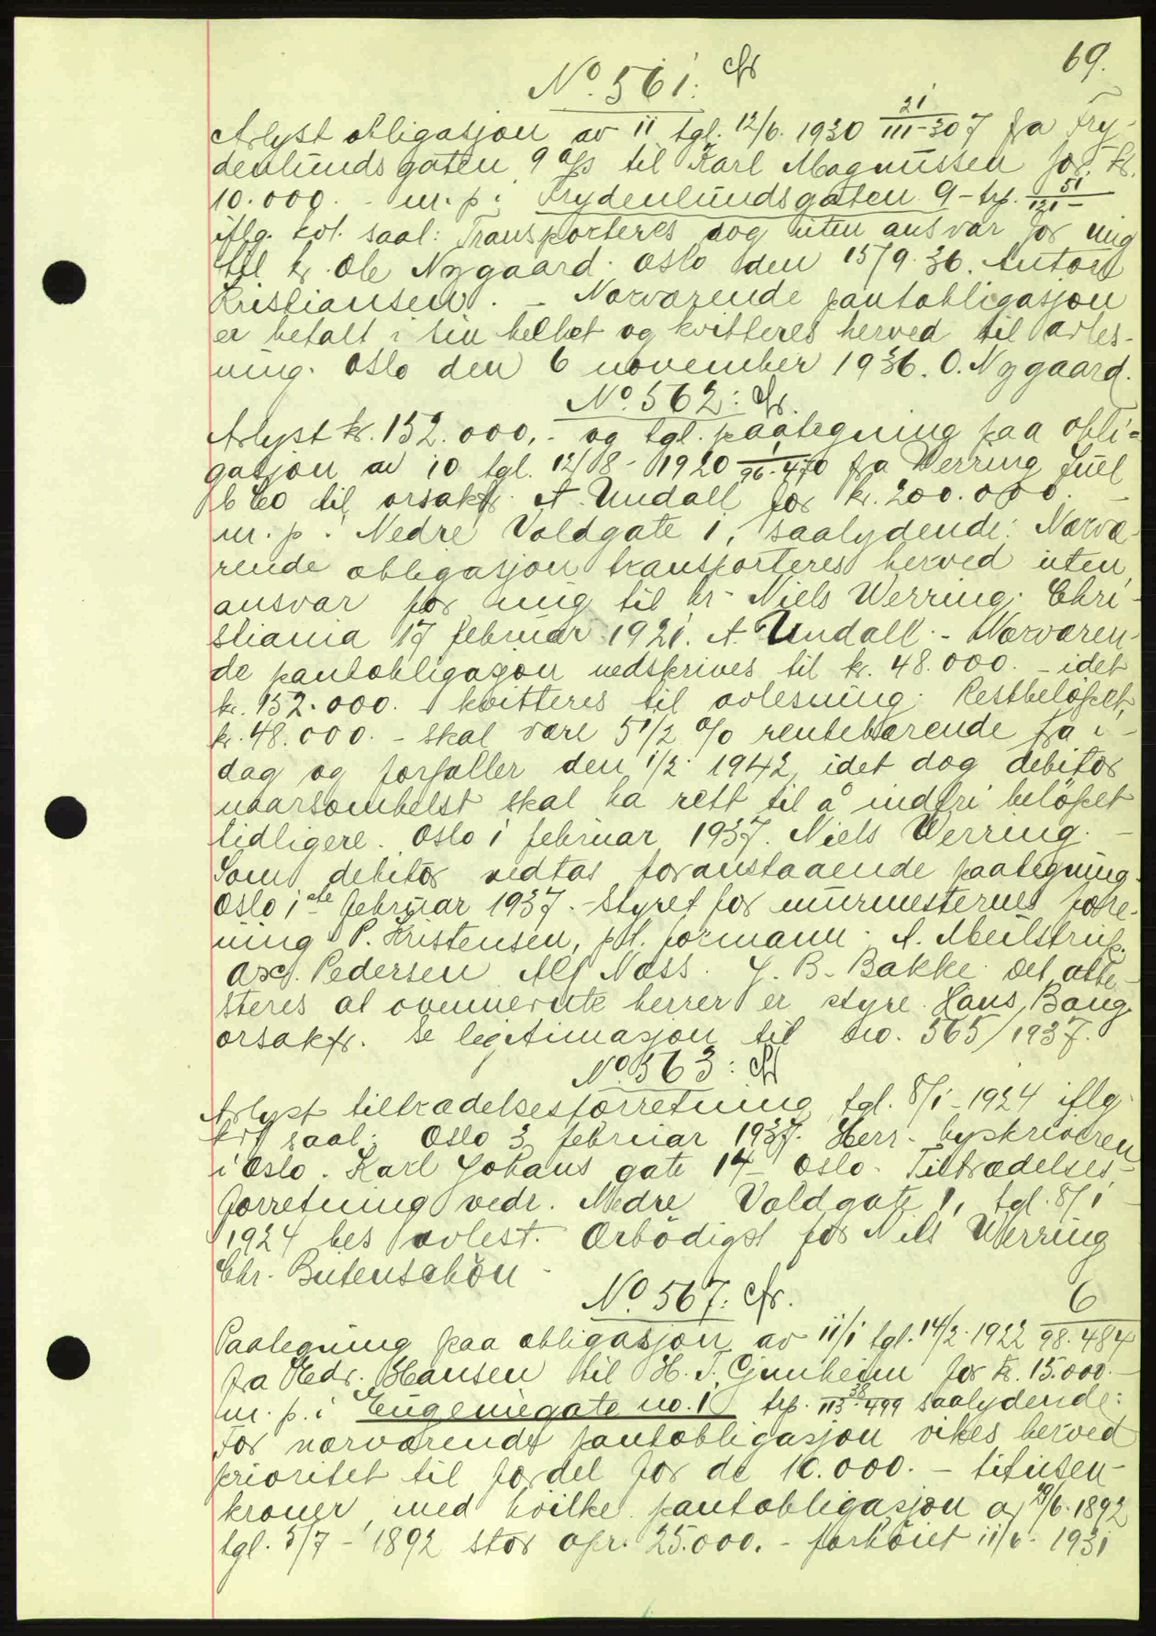 69.
No. 561: fr
Avlyst obligasjon av 11 tgl. 12/6. 1930 21/111-307 fra Fry-
denlundsgaten 9 a/s til Karl Magnussen for kr.
10.000. - m. p. i Frydenlundsgaten 9 - trp. 51/121 -
iflg. kvt. saal: Transporteres dog uten ansvar for mig
til hr. Ole Nygaard. Oslo den 15/9. 36. Anton
Kristiansen. - Nærværende pantobligasjon
er betalt i sin helhet og kvitteres herved til avles-
ning. Oslo den 6 november 1936. O. Nygaard.
No. 562: fr.
Avlyst kr. 152.000,- og tgl. paategning paa obli-
gasjon av 10 tgl. 12/8 - 1920 1/96-470 fra Werring Juel
& Co til orsakfr. A. Undall for kr. 200.000. -
m. p. i Nedre Voldgate 1, saalydende: Nærvæ-
rende obligasjon transporteres herved uten
ansvar for mig til hr. Niels Werring. Chri-
stiania 17 februar 1921. A. Undall. - Nærværen-
de pantobligasjon nedskrives til kr. 48.000. - idet
kr. 152.000. kvitteres til avlesning. Restbeløpet,
kr. 48.000. - skal være 5 1/2 % rentebærende fra i -
dag og forfaller den 1/2. 1942, idet dog debitor
naarsomhelst skal ha rett til å indfri beløpet
tidligere. Oslo 1 februar 1937. Niels Werring. -
Som debitor vedtas foranstaaende paategning.
Oslo 1ste februar 1937. - Styret for murmesternes fore-
ning P. Kristensen, p.t. formann. A. Meilstrup.
Axel Pedersen Alf Næss. J. B. Bakke. Det atte-
steres at ovennevnte herrer er styre. Hans Bang
orsakfr. Se legitimasjon til no. 565/1937.
No. 563: fr
Avlyst tiltrædelsesforretning tgl. 8/1 - 1924 iflg.
kvt saal: Oslo 3 februar 1937. Herr. byskriveren
i Oslo. Karl Johans gate 14 - Oslo. Tiltrædelses-
forretning vedr. Nedre Voldgate 1, tgl. 8/1 -
1924 bes avlest. Ærbödigst for Niels Werring
Chr. Butenschön -
No. 567: fr. 6
Paategning paa obligasjon av 11/1 tgl. 14/2. 1922 98.484
fra Hedv. Hansen til H. T. Gjunheim for kr. 15.000. -
m. p. i Eugeniegate no. 1 trp. 38/113-499 saalydende:
For nærværende pantobligasjon vikes herved
prioritet til fordel for de 10.000. - titusen-
kroner, med hvilke pantobligasjon av 29/6. 1892
tgl. 5/7 - 1892 stor opr. 25.000. - forhöiet 11/6. 1931